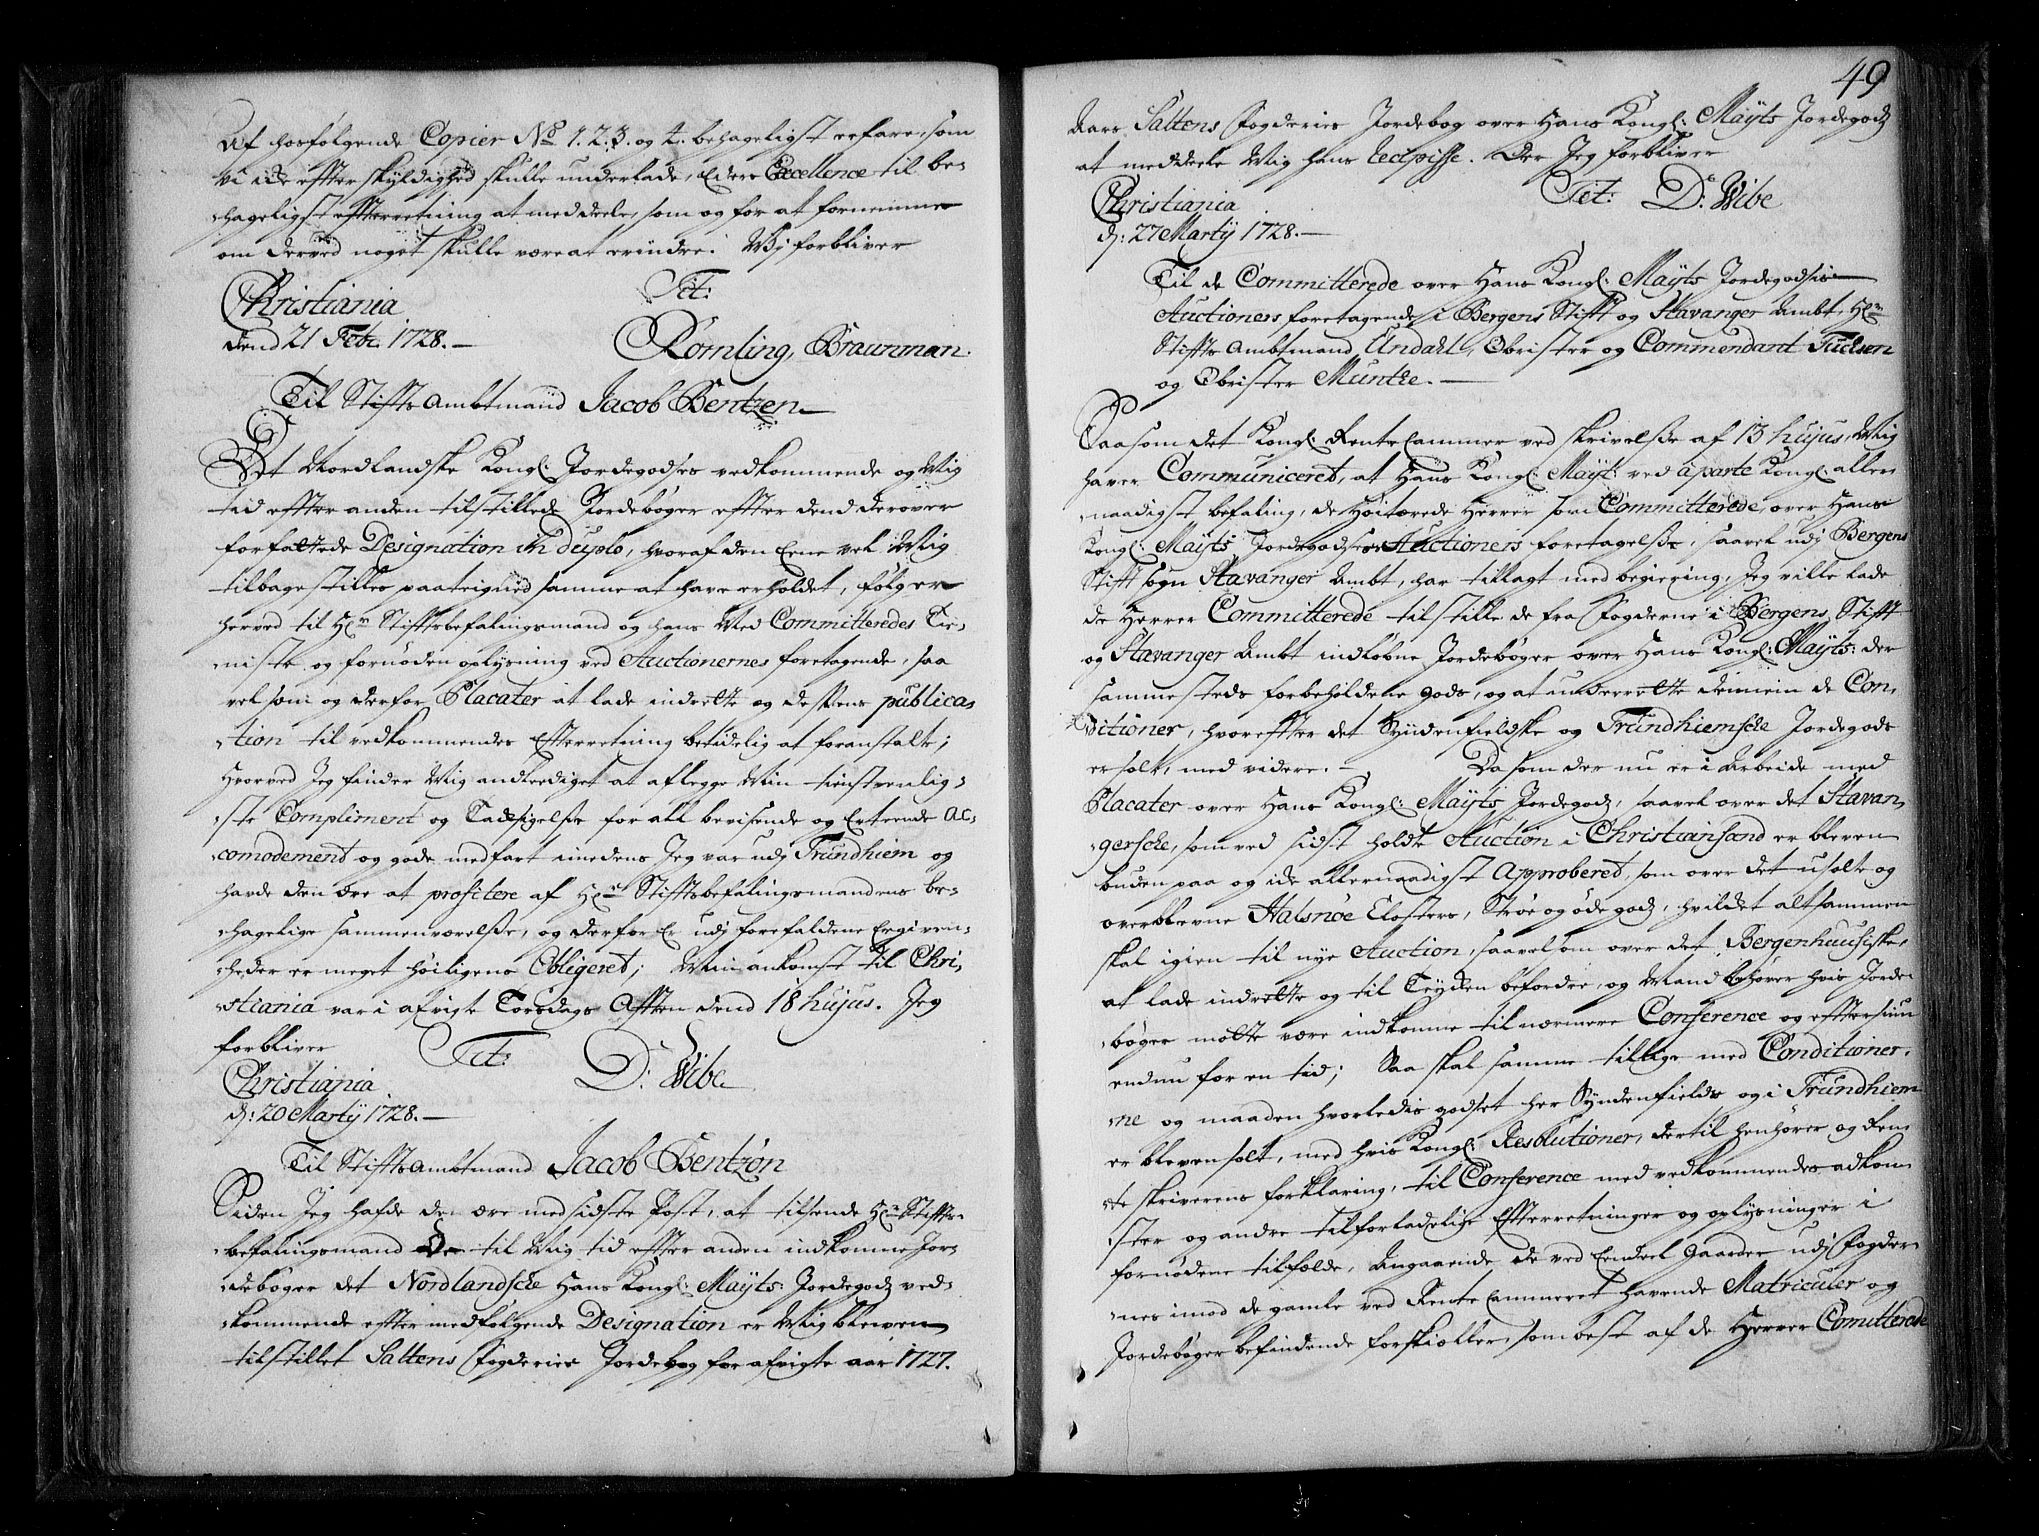 Af hosfølgende Copier No 1. 2. 3. og 4. behageligst erfare, som
Vi icke effter skyldighed skulle underlade, Eders Excellence til be-
hageligst effterretning at meddeele, som og for at fornemme
om derved noget skulle være at erindre. Vi forbliver
Christiania Tit:
dend 21 Febr. 1728.— Römling, Braunman.
Til Stiftsambtmand Jacob Bentzen
Det Nordlandske Kongl: Jordegodses vedkommende og Mig
tid effter anden tilstillede Jordebøger effter dend derover
forfattede Designation in duplo, hvoraf den Eene vel Mig
tilbagestilles paateigned samme at have erholdet, følger
herved til Hr. Stiftsbefalingsmand og hans Med Committeredes Tie-
niste og fornøden oplysning ved Auctionernes foretagende, saa
vel som og derfor Placater at lade indrette og desses publica-
tion til vedkommendes Efterretning betidelig at foranstalte;
Hvorved Jeg finder Mig andlediget at aflegge Min tienstvenlig-
ste Compliment og Tacksigelse for all bevisende og Erteende Ac-
comodement og gode medfart imedens Jeg var udj Trundhiem og
havde den ære at profitere af Hr. Stiftsbefalingsmandens be-
hagelige sammenværelsse, og derfor Er udj forefaldene Ergiven-
heder er meget høiligens Obligeret; Min ankomst til Chri-
stiania var i afvigte Torsdags Afften dend 18 hujus. Jeg
forbliver Tit: D: Wibe
Christiania
d: 20 Martij 1728.—
Til Stiftsambtmand Jacob Bentzøn
Siden Jeg hafde den ære med sidste Post, at tilsende Hr. Stiffts-
befalingsmand De til Mig tid effter anden indkomne Jor-
debøger det Nordlandsche Hans Kongl: Mayts: Jordegods ved-
kommende effter medfølgende Designation er Mig bleven
tilstillet Saltens Fogderies Jordebog for afvigte aar 1727.
49
Saltens Fogderies Jordebog over Hans Kongl: Mayts Jordegods
at meddeele Mig hans recipisse. Der Jeg forbliver
Christiania Tit: D: Wibe
d: 27 Martij 1728.—
Til de Committerede over Hans Kongl: Mayts Jordegodsis
Auctioners foretagende i Bergens Stifft og Stavanger Ambt, Hr.
Stifts Ambtmand Undahl, Obrister og Commendant Tuchsen
og Obrister Munthe.—
Saasom det Kongl: Rente Cammer ved skrivelsse af 13 hujus, Mig
haver Communiceret, at Hans Kongl: Mayt: ved aparte Kongl: aller-
naadigst befaling, de Høitærede Herrer som Committerede, over Hans
Kongl: Mayts Jordegodses Auctioners foretagelsse, saavel udj Bergens
Stift som Stavanger Ambt, har tillagt med begiering, Jeg ville lade
de Herrer Committerede tilstille de fra Fogderne i Bergens Stifft
og Stavanger Ambt indkobne Jordebøger over Hans Kongl: Mayts: der
sammesteds forbeholdene gods, og at underrette dennem de Con-
ditioner, hvoreffter det Syndenfieldske og Trundhiemsche Jordegods
er solt, med videre.— Da som der nu er i Arbeide med
Placater over Hans Kongl: Mayts Jordegods, saavel over det Stavan-
gersche, som ved sidst holdte Auction i Christiansand er bleven
buden paa og icke allernaadigst Approberet, som over det usolte og
overblevne Halsnøe Closters, Strøe og øde gods, hvilcket altsammen
skal igien til nye Auction, saavelsom over det Bergenhuusiske,
at lade indrette og til Trycken befordre, og Mand behøver hvis Jorde-
bøger motte være indkomne til nærmere Conference og efftersiun
endnu for en tid; Saa skal samme tillige med Conditioner-
ne og maaden hvorledis godset her Syndenfields og i Trundhiem
er bleven solt, med hvis Kongl: Resolutioner, dertil henhører og Ren-
te skriverens forklaring, til Conference med vedkommendes adkom-
ster og andre tilforladelige Effterretninger og oplysninger i
fornødene tilfelde, Angaaende de ved Eendeel Gaarder udj Fogderi-
nes imod de gamle ved Rente Cammeret havende Matriculer og
Jordebøger befindende forskiæller, som best af de Herrer Comitterede